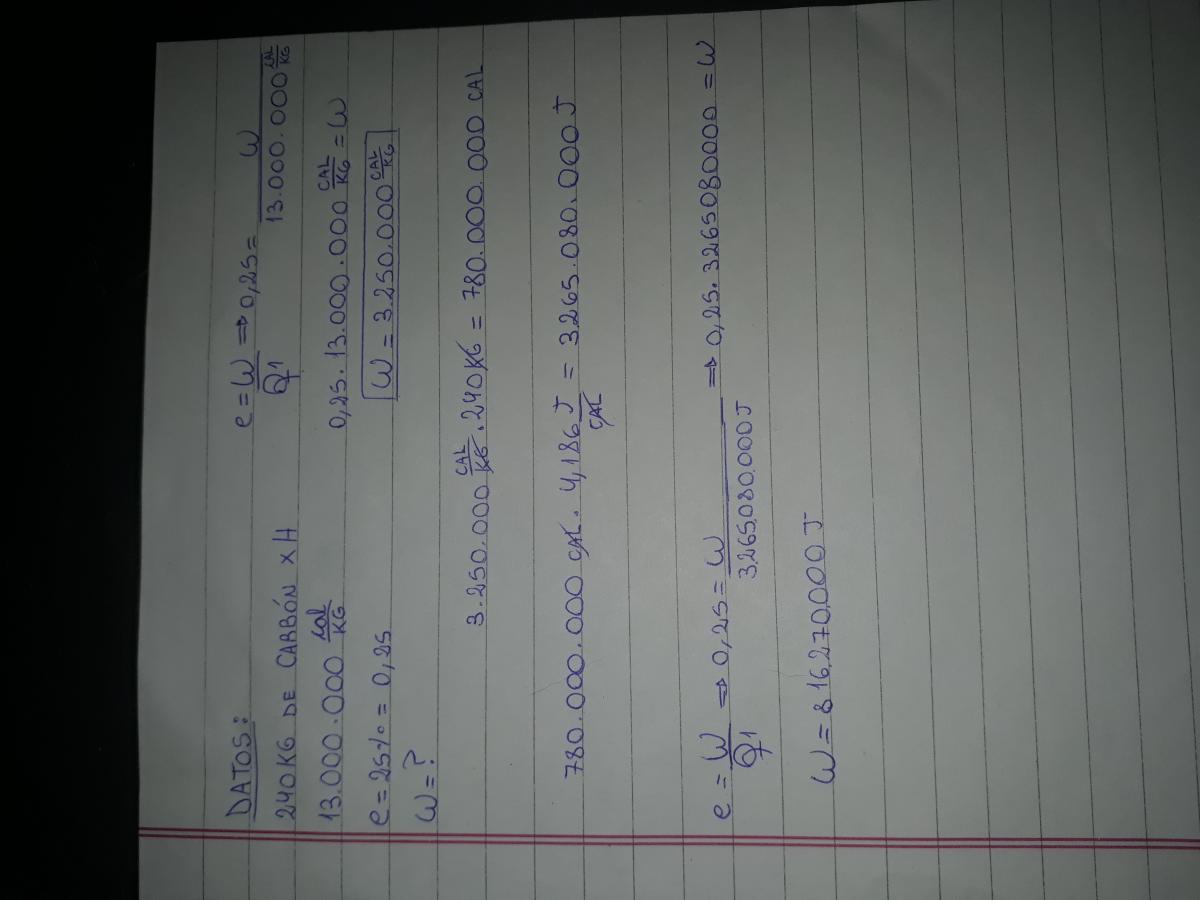 DATOS:
240 KG DE CARBÓN x H
13.000.000 cal/KG
e = 25% = 0,25
W = ?
e = W/Q1 ⇒ 0,25 = W/13.000.000 CAL/KG
0,25 . 13.000.000 CAL/KG = W
W = 3.250.000 CAL/KG
3.250.000 CAL/KG . 240 KG = 780.000.000 CAL
780.000.000 CAL . 4,186 J/CAL = 3265.080.000 J
e = W/Q1 ⇒ 0,25 = W/3.265.080.000 J ⇒ 0,25 . 3265080000 = W
W = 816.270.000 J